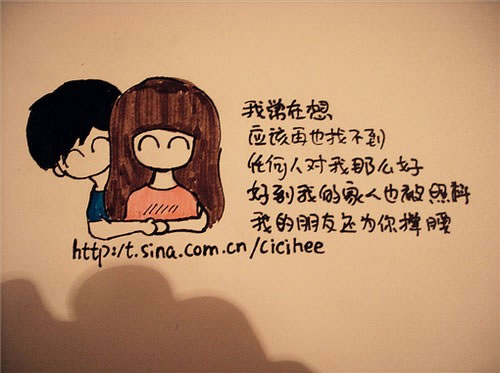 我常在想
应该再也找不到
任何人对我那么好
好到我的家人也被照料
我的朋友还为你撑腰
http://t.sina.com.cn/cicihee